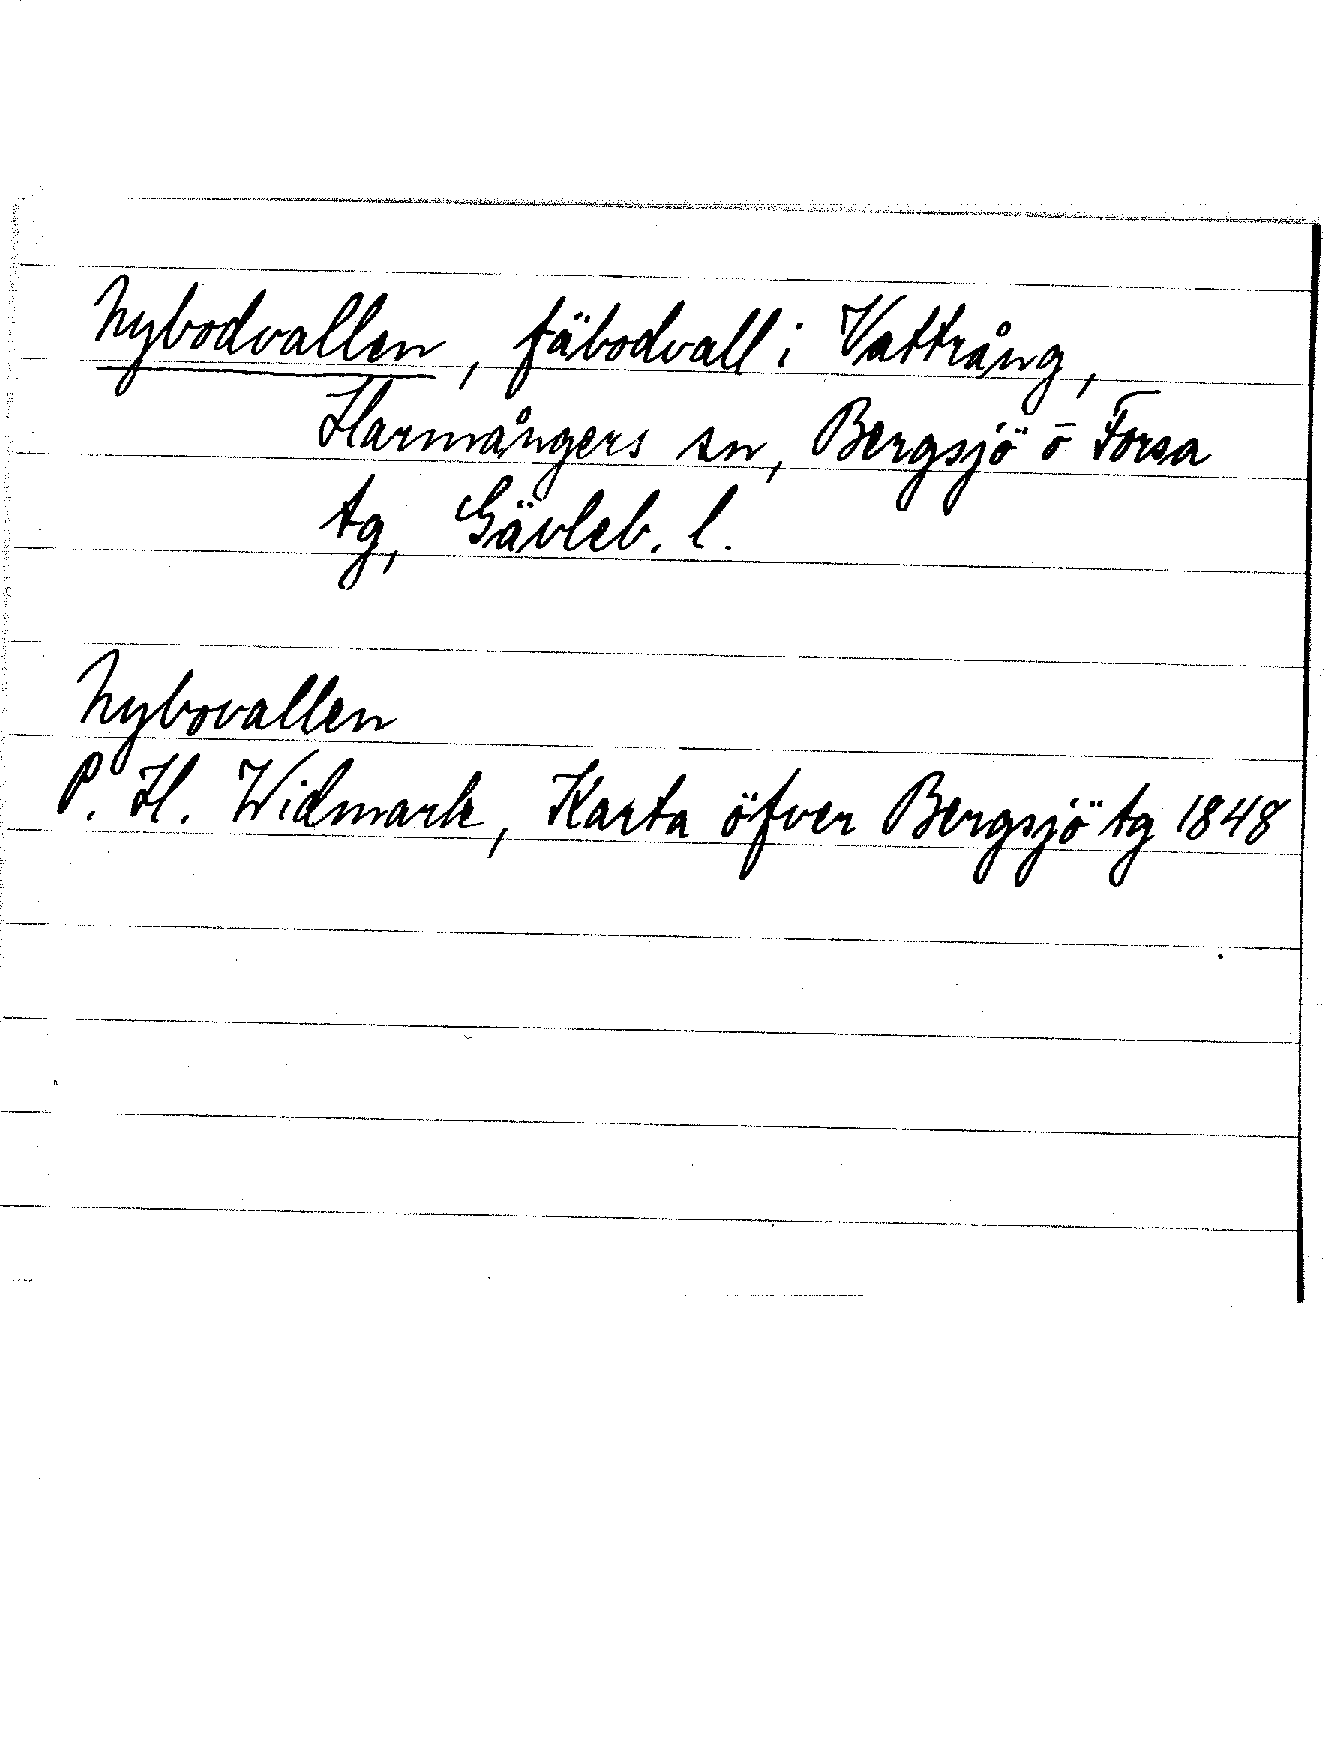 Nybodvallen, fäbodvall i Vattrång,
Harmångers sn, Bergsjö o Forsa
tg, Gävleb. l.
Nybovallen
P. H. Widmark, Karta öfver Bergsjö tg 1848